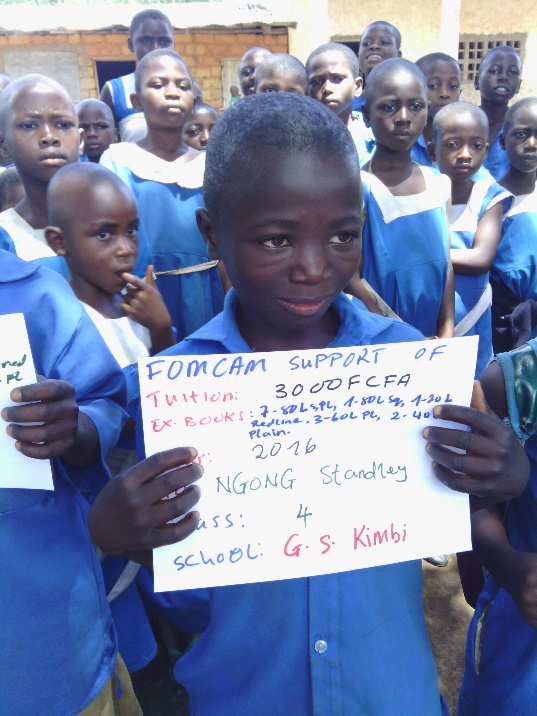 FOMCAM SUPPORT OF
TUITION: 3000FCFA
EX. BOOKS: 7-80L SPL, 1-80L Sq, 1-20L
Redline, 3-60L PL, 2-40
Plain.
2016
NGONG Standley
ass: 4
SCHOOL: G. S. Kimbi
ned
PL